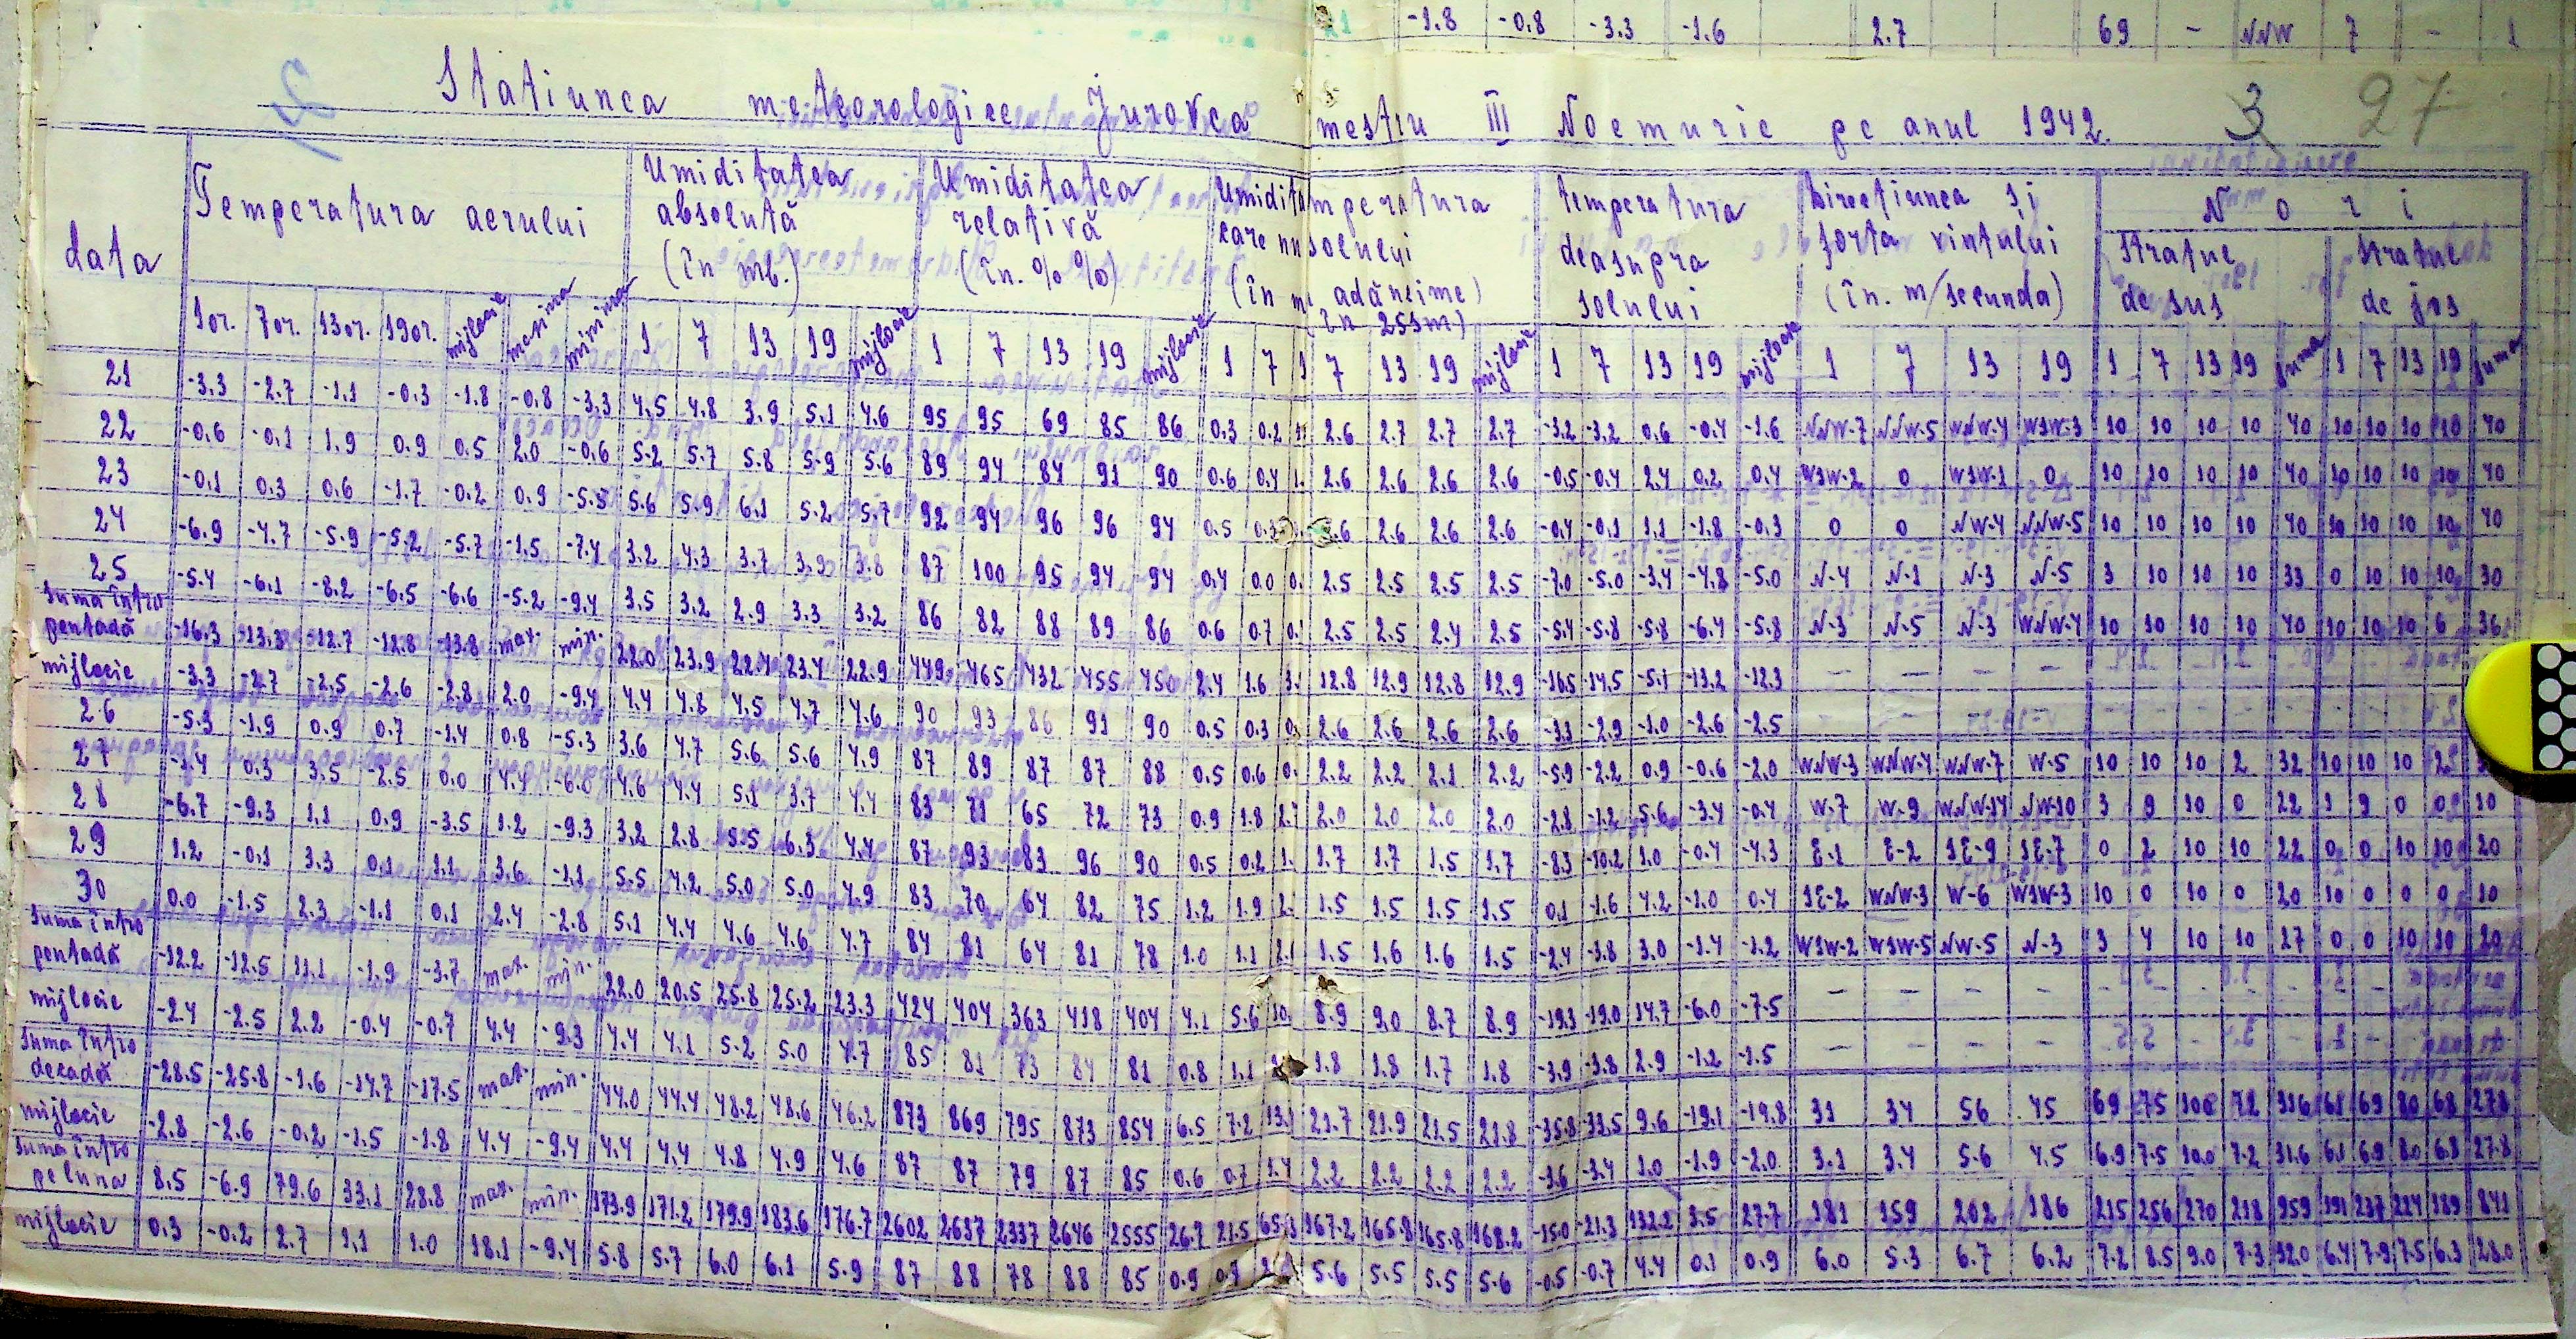 -1.8 -0.8 -3.3 -1.6 2.7 69 - NNW 7 - 1
Statiunea meteorologice Jurovca mestru III Noemurie pe anul 1942. 3 27
data Temperatura aerului Umiditatea absolută (în mb.) Umiditatea relativă (în. % %) Umidita care nu (în m mperatura solului adâncime) (în 25sm) temperatura deasupra solului Direcțiunea și forta vintului (în. m/secunda) N o r i
stratue de sus stratue de jos
1or. 7or. 13or. 19or. mijlocie maxima minima 1 7 13 19 mijlocie 1 7 13 19 mijlocie 1 7 1 7 13 19 mijlocie 1 7 13 19 mijlocie 1 7 13 19 1 7 13 19 suma 1 7 13 19 suma
21 -3.3 -2.7 -1.1 -0.3 -1.8 -0.8 -3.3 4.5 4.8 3.9 5.1 4.6 95 95 69 85 86 0.3 0.2 2.6 2.7 2.7 2.7 -3.2 -3.2 0.6 -0.4 -1.6 NNW-7 NNW-5 WNW-4 WSW-3 10 10 10 10 40 10 10 10 10 40
22 -0.6 -0.1 1.9 0.9 0.5 2.0 -0.6 5.2 5.7 5.8 5.9 5.6 89 94 84 91 90 0.6 0.4 1. 2.6 2.6 2.6 2.6 -0.5 -0.4 2.4 0.2 0.4 WSW-2 0 WSW-1 0 10 10 10 10 40 10 10 10 10 40
23 -0.1 0.3 0.6 -1.7 -0.2 0.9 -5.5 5.6 5.9 6.1 5.2 5.7 92 94 96 96 94 0.5 0.3 2.6 2.6 2.6 2.6 -0.4 -0.1 1.1 -1.8 -0.3 0 0 NW-4 NNW-5 10 10 10 10 40 10 10 10 10 40
24 -6.9 -4.7 -5.9 -5.2 -5.7 -1.5 -7.4 3.2 4.3 3.7 3.9 3.8 87 100 95 94 94 0.4 0.0 0. 2.5 2.5 2.5 2.5 -7.0 -5.0 -3.4 -4.8 -5.0 N-4 N-1 N-3 N-5 3 10 10 10 33 0 10 10 10 30
25 -5.4 -6.1 -8.2 -6.5 -6.6 -5.2 -9.4 3.5 3.2 2.9 3.3 3.2 86 82 88 89 86 0.6 0.7 0. 2.5 2.5 2.4 2.5 -5.4 -5.8 -5.8 -6.4 -5.8 N-3 N-5 N-3 WNW-4 10 10 10 10 40 10 10 10 6 36
suma intro pentadă -16.3 -13.3 -12.7 -12.8 -13.8 max. min. 22.0 23.9 22.4 23.4 22.9 449 465 432 455 450 2.4 1.6 3. 12.8 12.9 12.8 12.9 -16.5 -14.5 -5.1 -13.2 -12.3 — — — —
mijlocie -3.3 -2.7 -2.5 -2.6 -2.8 2.0 -9.4 4.4 4.8 4.5 4.7 4.6 90 93 86 91 90 0.5 0.3 0. 2.6 2.6 2.6 2.6 -3.3 -2.9 -1.0 -2.6 -2.5 - - - -
26 -5.3 -1.9 0.9 0.7 -1.4 0.8 -5.3 3.6 4.7 5.6 5.6 4.9 87 89 87 87 88 0.5 0.6 0. 2.2 2.2 2.1 2.2 -5.9 -2.2 0.9 -0.6 -2.0 WNW-3 WNW-4 WNW-7 W-5 10 10 10 2 32 10 10 10 2
27 -1.4 0.3 3.5 -2.5 0.0 4.4 -6.0 4.6 4.4 5.1 3.7 4.4 83 71 65 72 73 0.9 1.8 2.7 2.0 2.0 2.0 2.0 -2.8 -1.2 5.6 -3.4 -0.4 W-7 W-9 WNW-14 NW-10 3 9 10 0 22 1 9 0 0 10
28 -6.7 -9.3 1.1 0.9 -3.5 1.2 -9.3 3.2 2.8 5.5 6.3 4.4 87 93 83 96 90 0.5 0.2 1. 1.7 1.7 1.5 1.7 -8.3 -10.2 1.0 -0.4 -4.3 E-1 E-2 SE-9 SE-7 0 2 10 10 22 0 0 10 10 20
29 1.2 -0.1 3.3 0.1 1.1 3.6 -1.1 5.5 4.2 5.0 5.0 4.9 83 70 64 82 75 1.2 1.9 2. 1.5 1.5 1.5 1.5 0.1 -1.6 4.2 -1.0 0.4 SE-2 WNW-3 W-6 WSW-3 10 0 10 0 20 10 0 0 0 10
30 0.0 -1.5 2.3 -1.1 0.1 2.4 -2.8 5.1 4.4 4.6 4.6 4.7 84 81 64 81 78 1.0 1.1 2.1 1.5 1.6 1.6 1.5 -2.4 -3.8 3.0 -1.4 -1.2 WSW-2 WSW-5 NW-5 N-3 3 4 10 10 27 0 0 10 10 20
suma intro pentadă -12.2 -12.5 11.1 -1.9 -3.7 max. min. 22.0 20.5 25.8 25.2 23.3 424 404 363 418 404 4.1 5.6 10. 8.9 9.0 8.7 8.9 -19.3 -19.0 14.7 -6.0 -7.5 - - - -
mijlocie -2.4 -2.5 2.2 -0.4 -0.7 4.4 -9.3 4.4 4.1 5.2 5.0 4.7 85 81 73 84 81 0.8 1.1 1.8 1.8 1.7 1.8 -3.9 -3.8 2.9 -1.2 -1.5 — — — —
suma intro decadă -28.5 -25.8 -1.6 -14.7 -17.5 max. min. 44.0 44.4 48.2 48.6 46.2 873 869 795 873 854 6.5 7.2 13.1 21.7 21.9 21.5 21.8 -35.8 -33.5 9.6 -19.1 -19.8 31 34 56 45 69 75 100 72 316 61 69 80 68 278
mijlocie -2.8 -2.6 -0.2 -1.5 -1.8 4.4 -9.4 4.4 4.4 4.8 4.9 4.6 87 87 79 87 85 0.6 0.7 1.4 2.2 2.2 2.2 2.2 -3.6 -3.4 1.0 -1.9 -2.0 3.1 3.4 5.6 4.5 6.9 7.5 10.0 7.2 31.6 6.1 6.9 8.0 6.8 27.8
suma intro peluna 8.5 -6.9 79.6 33.1 28.8 max. min. 173.9 171.2 179.9 183.6 176.7 2602 2637 2337 2646 2555 26.7 21.5 65.3 167.2 165.8 165.8 168.2 -15.0 -21.3 132.2 3.5 27.7 181 159 202 186 215 256 270 218 959 191 237 224 189 841
mijlocie 0.3 -0.2 2.7 1.1 1.0 18.1 -9.4 5.8 5.7 6.0 6.1 5.9 87 88 78 88 85 0.9 5.6 5.5 5.5 5.6 -0.5 -0.7 4.4 0.1 0.9 6.0 5.3 6.7 6.2 7.2 8.5 9.0 7.3 32.0 6.4 7.9 7.5 6.3 28.0